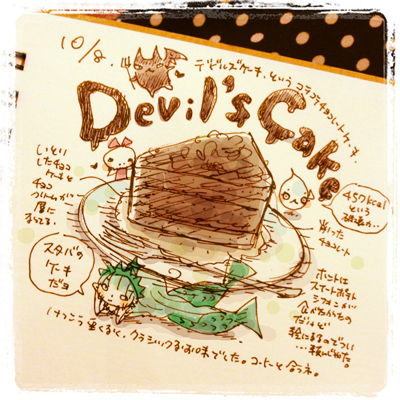 10/8.
デビルズケーキ、という コテコテチョコレートケーキ.
Devil's Cake
しっとり
したチョコ
ケーキと
チョコ
クリームが
層に
なってる.
457kcal
という
破壊力…
削った
チョコレート
スタバの
ケーキ
だヨ
ホントは
スマートお芋
シフォンが
食べたかった
のだけど
絵になるのでつい
…頼んじゃった。
けっこう重くるく、クラシックなお味でした。コーヒーと合うネ。